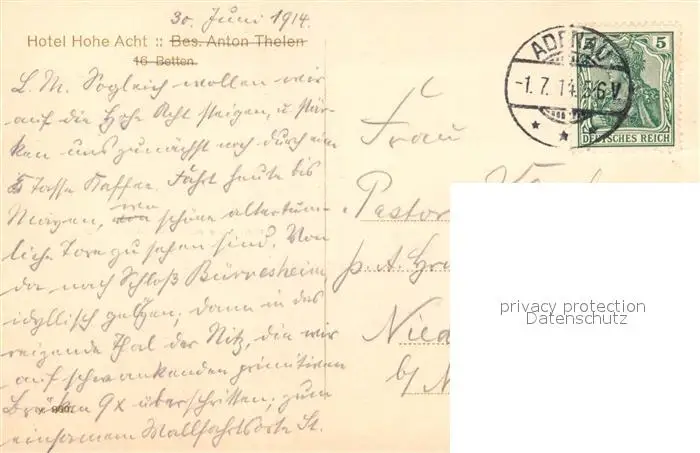 30. Juni 1914.
Hotel Hohe Acht :: Bes. Anton Thelen
16 Betten.
L. M. Sogleich wollen wir
auf die Hohe Acht steigen, u. stär-
ken uns zunächst noch durch eine
Tasse Kaffee. Fahrt heute bis
Mayen, wo schöne altertüm-
liche Tore zu sehen sind. Von
da nach Schloß Bürresheim
idyllisch gelegen, dann in das
reizende Thal der Nitz, die wir
auf schwankenden primitiven
Brücken 9x überschritten; zum
einsamen Wallfahrtsorte St.
ADENAU
-1.7.14. 5-6V
5
DEUTSCHES REICH
Frau
Pastor
p. A.
Nied
b/ N
privacy protection
Datenschutz